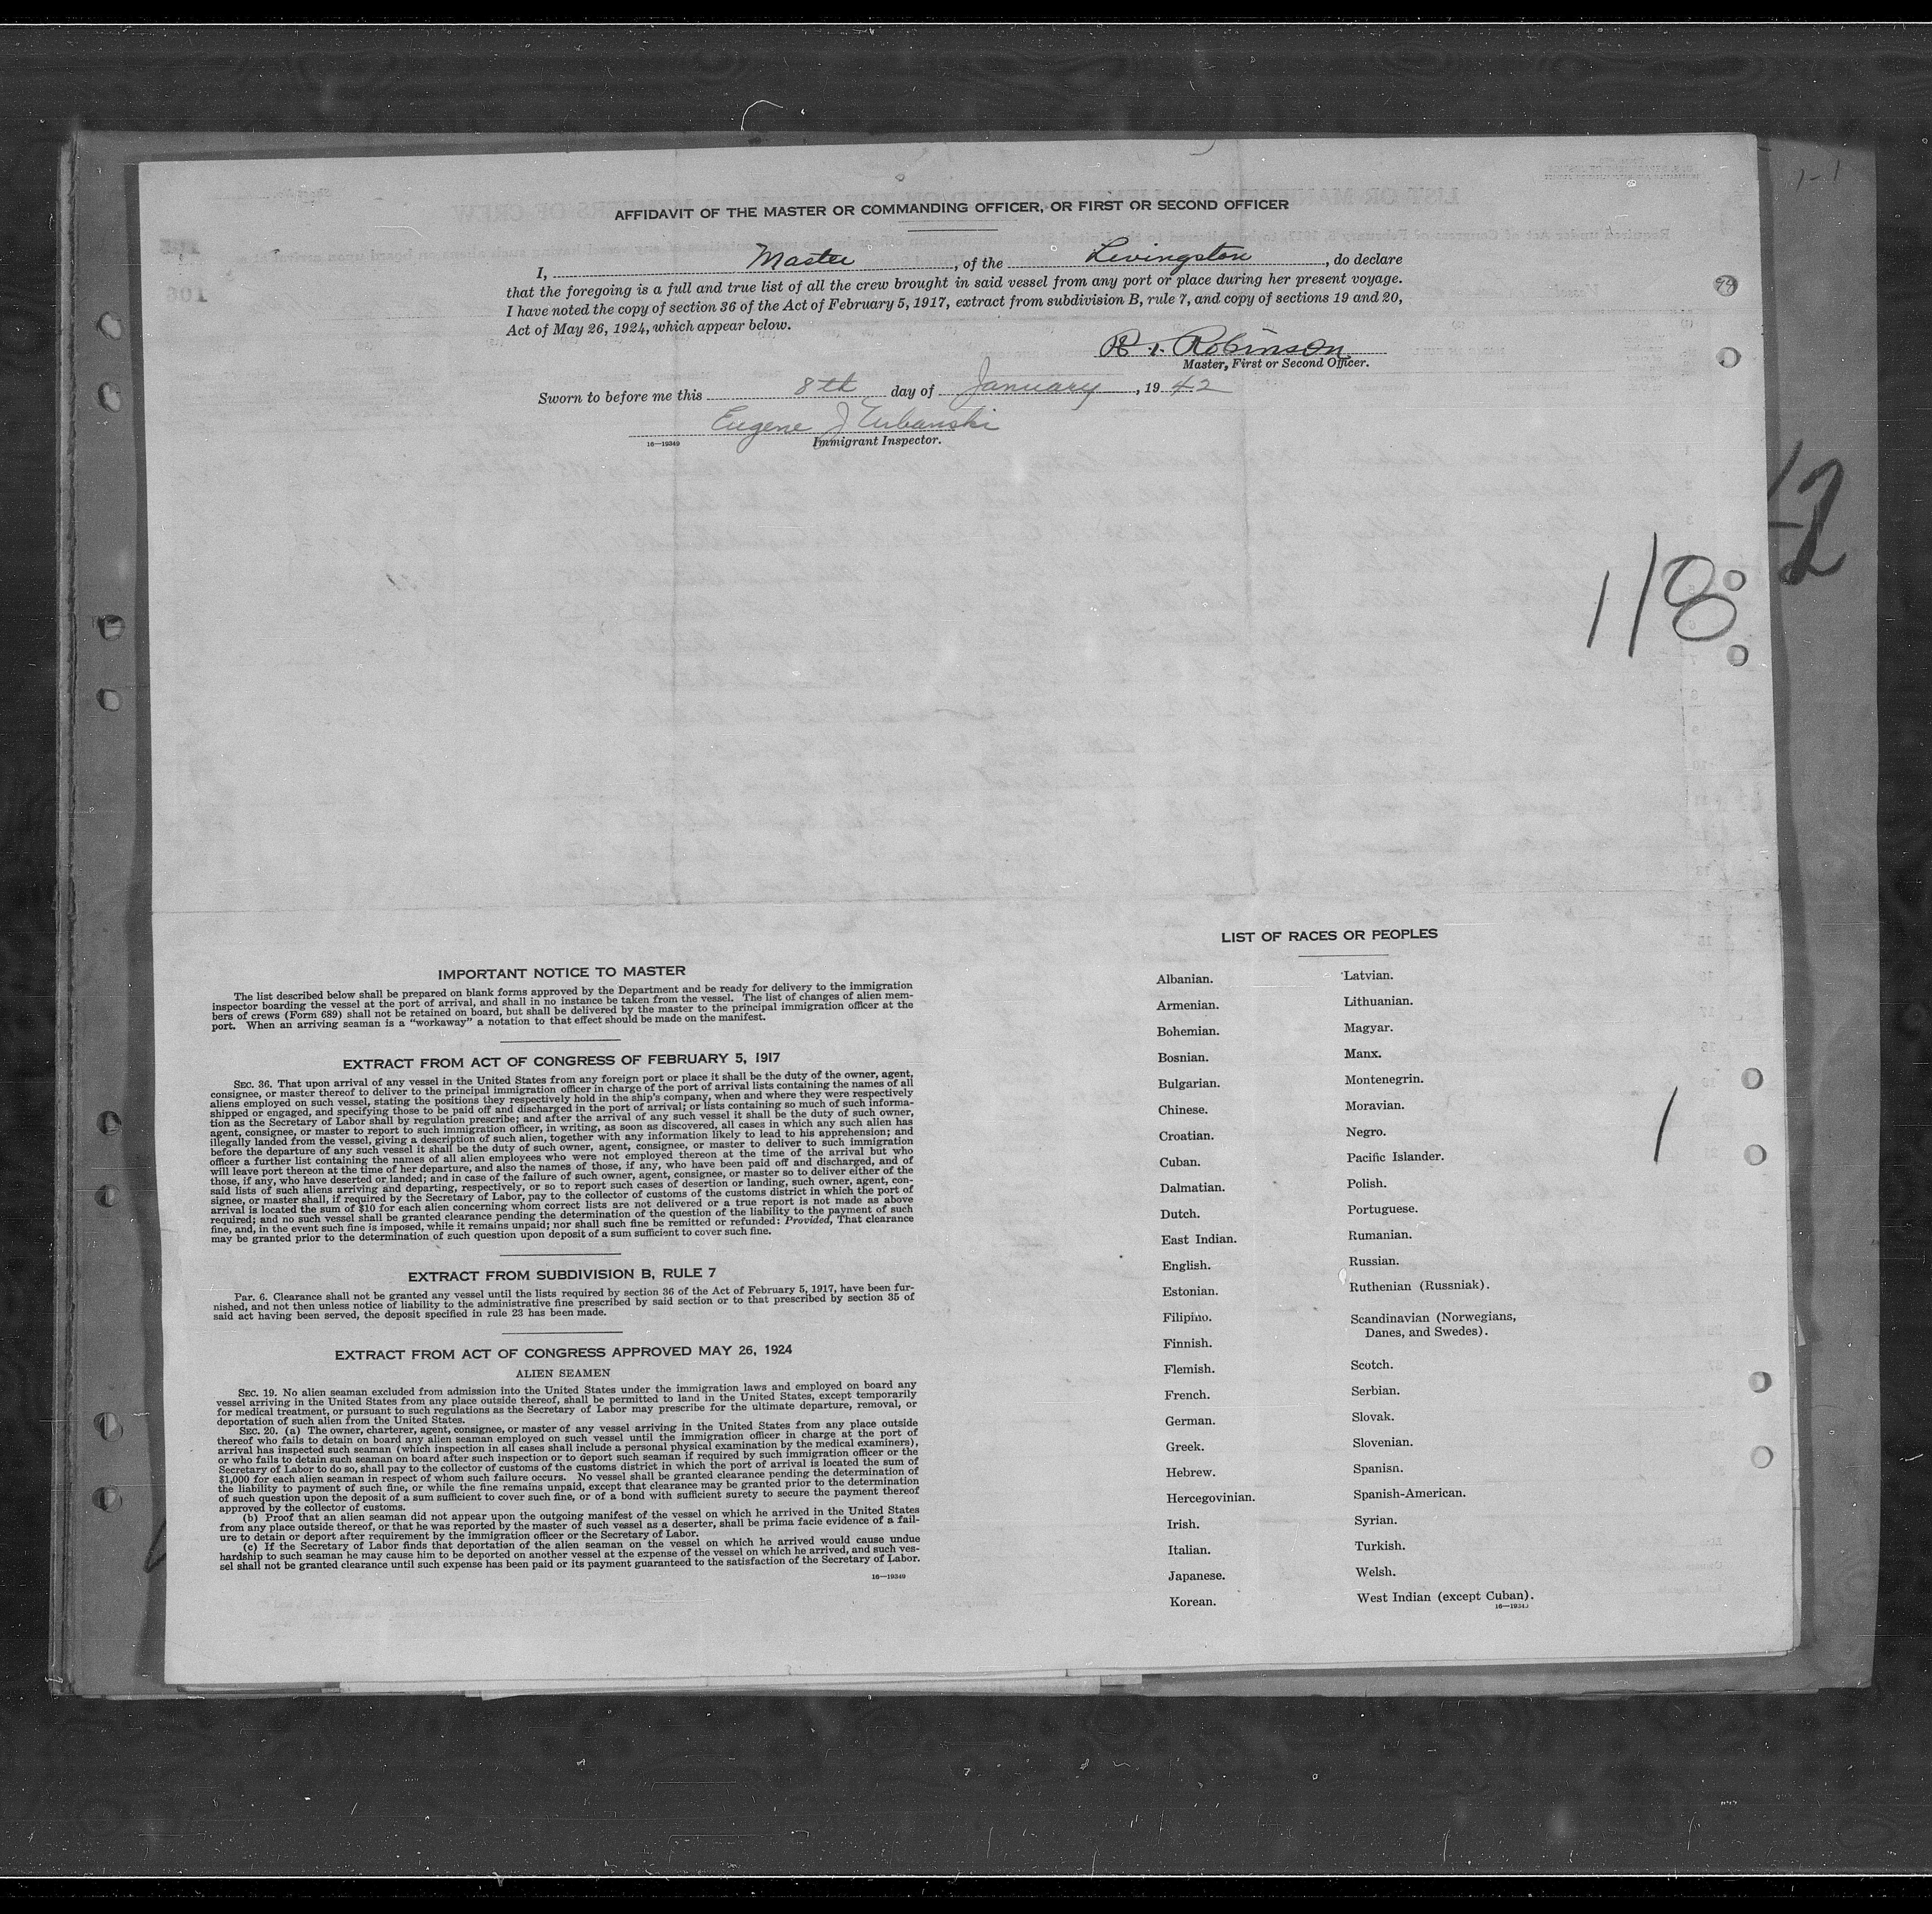 AFFIDAVIT OF THE MASTER OR COMMANDING OFFICER, OR FIRST OR SECOND OFFICER
I, Master, of the Livingston, do declare
that the foregoing is a full and true list of all the crew brought in said vessel from any port or place during her present voyage.
I have noted the copy of section 36 of the Act of February 5, 1917, extract from subdivision B, rule 7, and copy of sections 19 and 20,
Act of May 26, 1924, which appear below.
Robinson
Master, First or Second Officer.
Sworn to before me this 8th day of January, 1942
Eugene J
16—19349 Immigrant Inspector.
118
IMPORTANT NOTICE TO MASTER
The list described below shall be prepared on blank forms approved by the Department and be ready for delivery to the immigration
inspector boarding the vessel at the port of arrival, and shall in no instance be taken from the vessel. The list of changes of alien mem-
bers of crews (Form 689) shall not be retained on board, but shall be delivered by the master to the principal immigration officer at the
port. When an arriving seaman is a "workaway" a notation to that effect should be made on the manifest.
EXTRACT FROM ACT OF CONGRESS OF FEBRUARY 5, 1917
SEC. 36. That upon arrival of any vessel in the United States from any foreign port or place it shall be the duty of the owner, agent,
consignee, or master thereof to deliver to the principal immigration officer in charge of the port of arrival lists containing the names of all
aliens employed on such vessel, stating the positions they respectively hold in the ship's company, when and where they were respectively
shipped or engaged, and specifying those to be paid off and discharged in the port of arrival; or lists containing so much of such informa-
tion as the Secretary of Labor shall by regulation prescribe; and after the arrival of any such vessel it shall be the duty of such owner,
agent, consignee, or master to report to such immigration officer, in writing, as soon as discovered, all cases in which any such alien has
illegally landed from the vessel, giving a description of such alien, together with any information likely to lead to his apprehension; and
before the departure of any such vessel it shall be the duty of such owner, agent, consignee, or master to deliver to such immigration
officer a further list containing the names of all alien employees who were not employed thereon at the time of the arrival but who
will leave port thereon at the time of her departure, and also the names of those, if any, who have been paid off and discharged, and of
those, if any, who have deserted or landed; and in case of the failure of such owner, agent, consignee, or master so to deliver either of the
said lists of such aliens arriving and departing, respectively, or so to report such cases of desertion or landing, such owner, agent, con-
signee, or master shall, if required by the Secretary of Labor, pay to the collector of customs of the customs district in which the port of
arrival is located the sum of $10 for each alien concerning whom correct lists are not delivered or a true report is not made as above
required; and no such vessel shall be granted clearance pending the determination of the question of the liability to the payment of such
fine, and, in the event such fine is imposed, while it remains unpaid; nor shall such fine be remitted or refunded: Provided, That clearance
may be granted prior to the determination of such question upon deposit of a sum sufficient to cover such fine.
EXTRACT FROM SUBDIVISION B, RULE 7
Par. 6. Clearance shall not be granted any vessel until the lists required by section 36 of the Act of February 5, 1917, have been fur-
nished, and not then unless notice of liability to the administrative fine prescribed by said section or to that prescribed by section 35 of
said act having been served, the deposit specified in rule 23 has been made.
EXTRACT FROM ACT OF CONGRESS APPROVED MAY 26, 1924
ALIEN SEAMEN
SEC. 19. No alien seaman excluded from admission into the United States under the immigration laws and employed on board any
vessel arriving in the United States from any place outside thereof, shall be permitted to land in the United States, except temporarily
for medical treatment, or pursuant to such regulations as the Secretary of Labor may prescribe for the ultimate departure, removal, or
deportation of such alien from the United States.
SEC. 20. (a) The owner, charterer, agent, consignee, or master of any vessel arriving in the United States from any place outside
thereof who fails to detain on board any alien seaman employed on such vessel until the immigration officer in charge at the port of
arrival has inspected such seaman (which inspection in all cases shall include a personal physical examination by the medical examiners),
or who fails to detain such seaman on board after such inspection or to deport such seaman if required by such immigration officer or the
Secretary of Labor to do so, shall pay to the collector of customs of the customs district in which the port of arrival is located the sum of
$1,000 for each alien seaman in respect of whom such failure occurs. No vessel shall be granted clearance pending the determination of
the liability to payment of such fine, or while the fine remains unpaid, except that clearance may be granted prior to the determination
of such question upon the deposit of a sum sufficient to cover such fine, or of a bond with sufficient surety to secure the payment thereof
approved by the collector of customs.
(b) Proof that an alien seaman did not appear upon the outgoing manifest of the vessel on which he arrived in the United States
from any place outside thereof, or that he was reported by the master of such vessel as a deserter, shall be prima facie evidence of a fail-
ure to detain or deport after requirement by the immigration officer or the Secretary of Labor.
(c) If the Secretary of Labor finds that deportation of the alien seaman on the vessel on which he arrived would cause undue
hardship to such seaman he may cause him to be deported on another vessel at the expense of the vessel on which he arrived, and such ves-
sel shall not be granted clearance until such expense has been paid or its payment guaranteed to the satisfaction of the Secretary of Labor.
16—19349
LIST OF RACES OR PEOPLES
Albanian.
Armenian.
Bohemian.
Bosnian.
Bulgarian.
Chinese.
Croatian.
Cuban.
Dalmatian.
Dutch.
East Indian.
English.
Estonian.
Filipino.
Finnish.
Flemish.
French.
German.
Greek.
Hebrew.
Hercegovinian.
Irish.
Italian.
Japanese.
Korean.
Latvian.
Lithuanian.
Magyar.
Manx.
Montenegrin.
Moravian.
Negro.
Pacific Islander.
Polish.
Portuguese.
Rumanian.
Russian.
Ruthenian (Russniak).
Scandinavian (Norwegians,
Danes, and Swedes).
Scotch.
Serbian.
Slovak.
Slovenian.
Spanish.
Spanish-American.
Syrian.
Turkish.
Welsh.
West Indian (except Cuban).